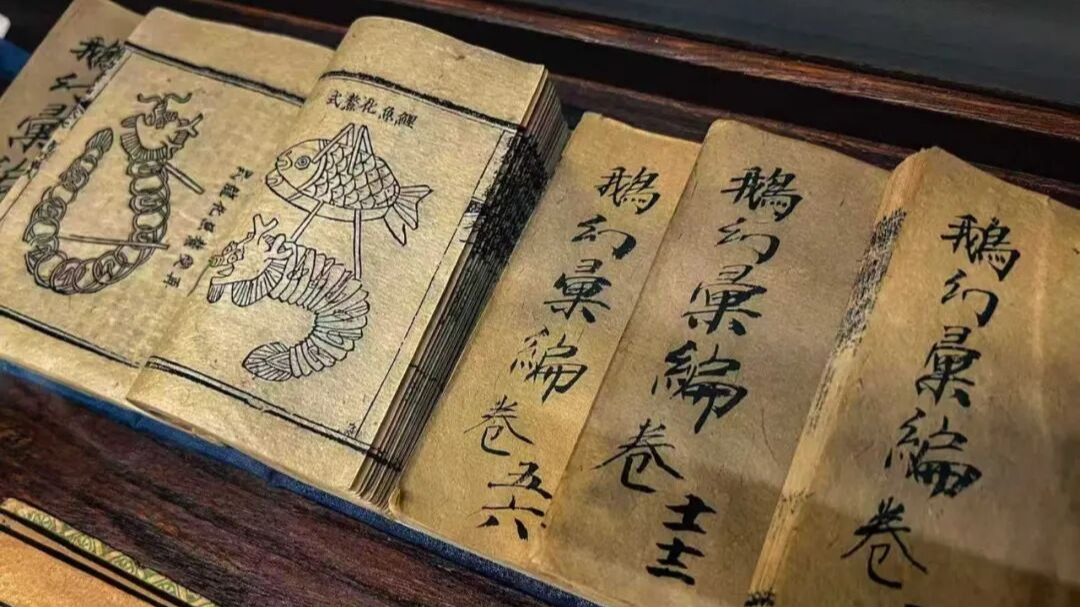 鵝幻彙編卷
鵝幻彙編卷十一十二
鵝幻彙編卷五六
鯉魚化鰲式
鵝幻彙